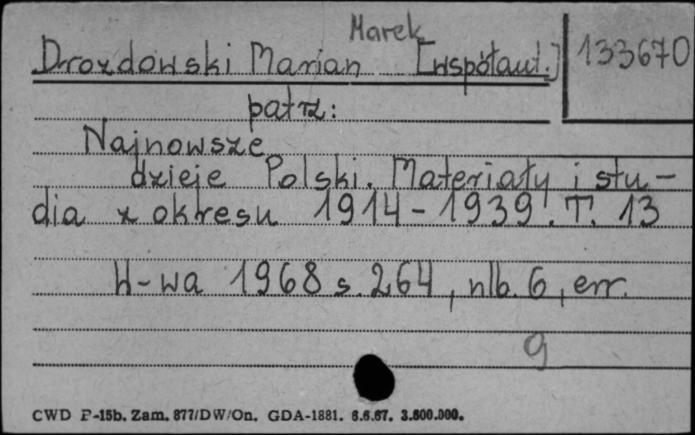 Marek
Drozdowski Marian [współaut.] 133670
patrz:
Najnowsze
dzieje Polski. Materiały i stu-
dia z okresu 1914-1939. T. 13
W-wa 1968 s. 264, nlb. 6, err.
g
CWD P-15b. Zam. 877/DW/On. GDA-1881. 6.6.67. 3.600.000.